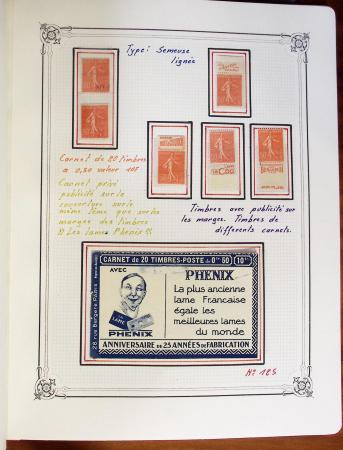 Type: Semeuse
lignée
Carnet de 20 timbres
a 0,50 valeur 10F
Carnet privé
publicité sur la
couverture sur le
même thème que sur les
marges des timbres
Les lames Phenix
Timbres avec publicité sur
les marges. Timbres de
differents carnets.
CARNET DE 20 TIMBRES-POSTE DE 0F50 (10F)
AVEC
PHENIX
La plus ancienne
lame Francaise
égale les
meilleures lames
du monde
LA LAME
PHENIX
28 rue Bergère PARIS
ANNIVERSAIRE DE 25 ANNÉES DE FABRICATION
N° 125